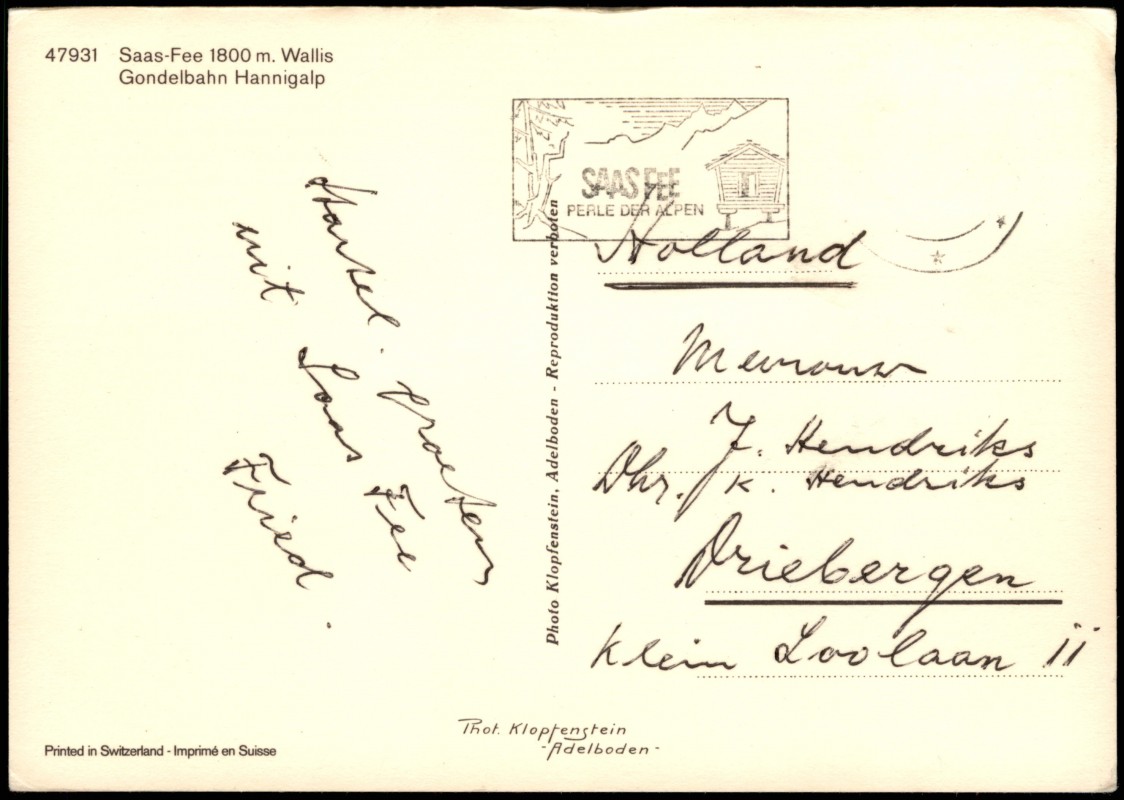 47931 Saas-Fee 1800 m. Wallis
Gondelbahn Hannigalp
SAAS FEE
PERLE DER ALPEN
Hartel. groeten
uit Saas Fee
Fried.
Photo Klopfenstein, Adelboden - Reproduktion verboten
Holland
Mevrouw
J. Hendriks
Dhr. K. Hendriks
Driebergen
Klein Loolaan 11
Phot. Klopfenstein
- Adelboden -
Printed in Switzerland - Imprimé en Suisse